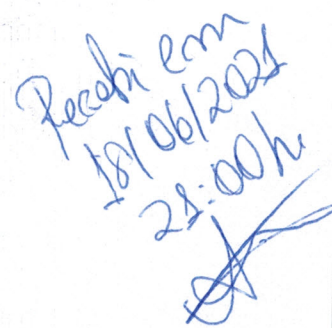 Recebi em
18/06/2021
21:00h.